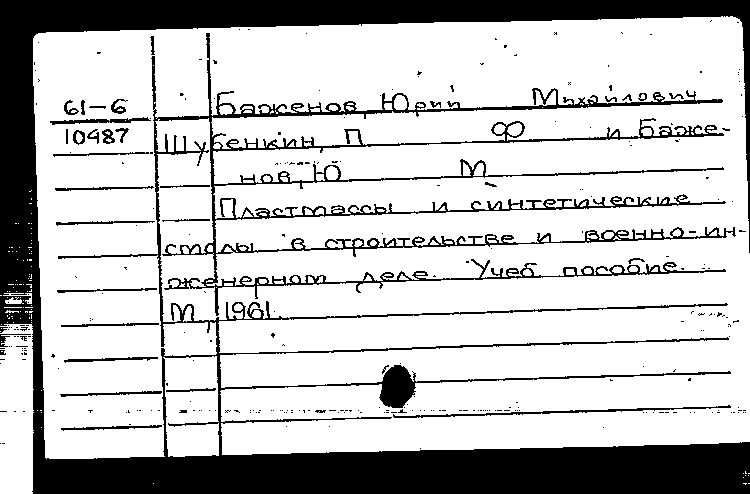 61-6 Баженов, Юрий Михайлович
10487 Шубенкин, П Ф и Баже-
нов, Ю М
Пластмассы и синтетические
смолы в строительстве и военно-ин-
женерном деле. Учеб. пособие.
М., 1961.